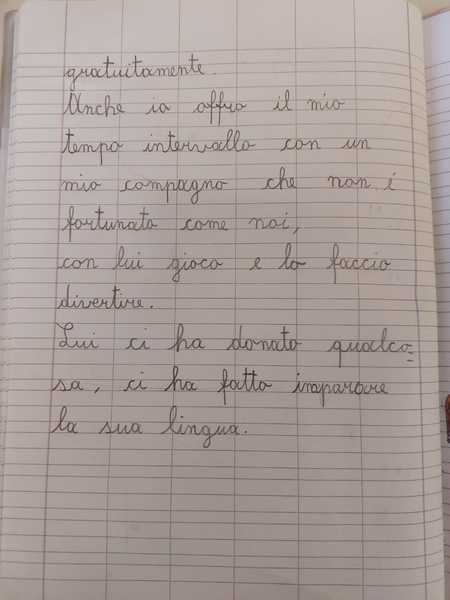 gratuitamente.
Anche io offro il mio
tempo intervallo con un
mio compagno che non è
fortunato come noi,
con lui gioco e lo faccio
divertire.
Lui ci ha donato qualco=
sa, ci ha fatto imparare
la sua lingua.